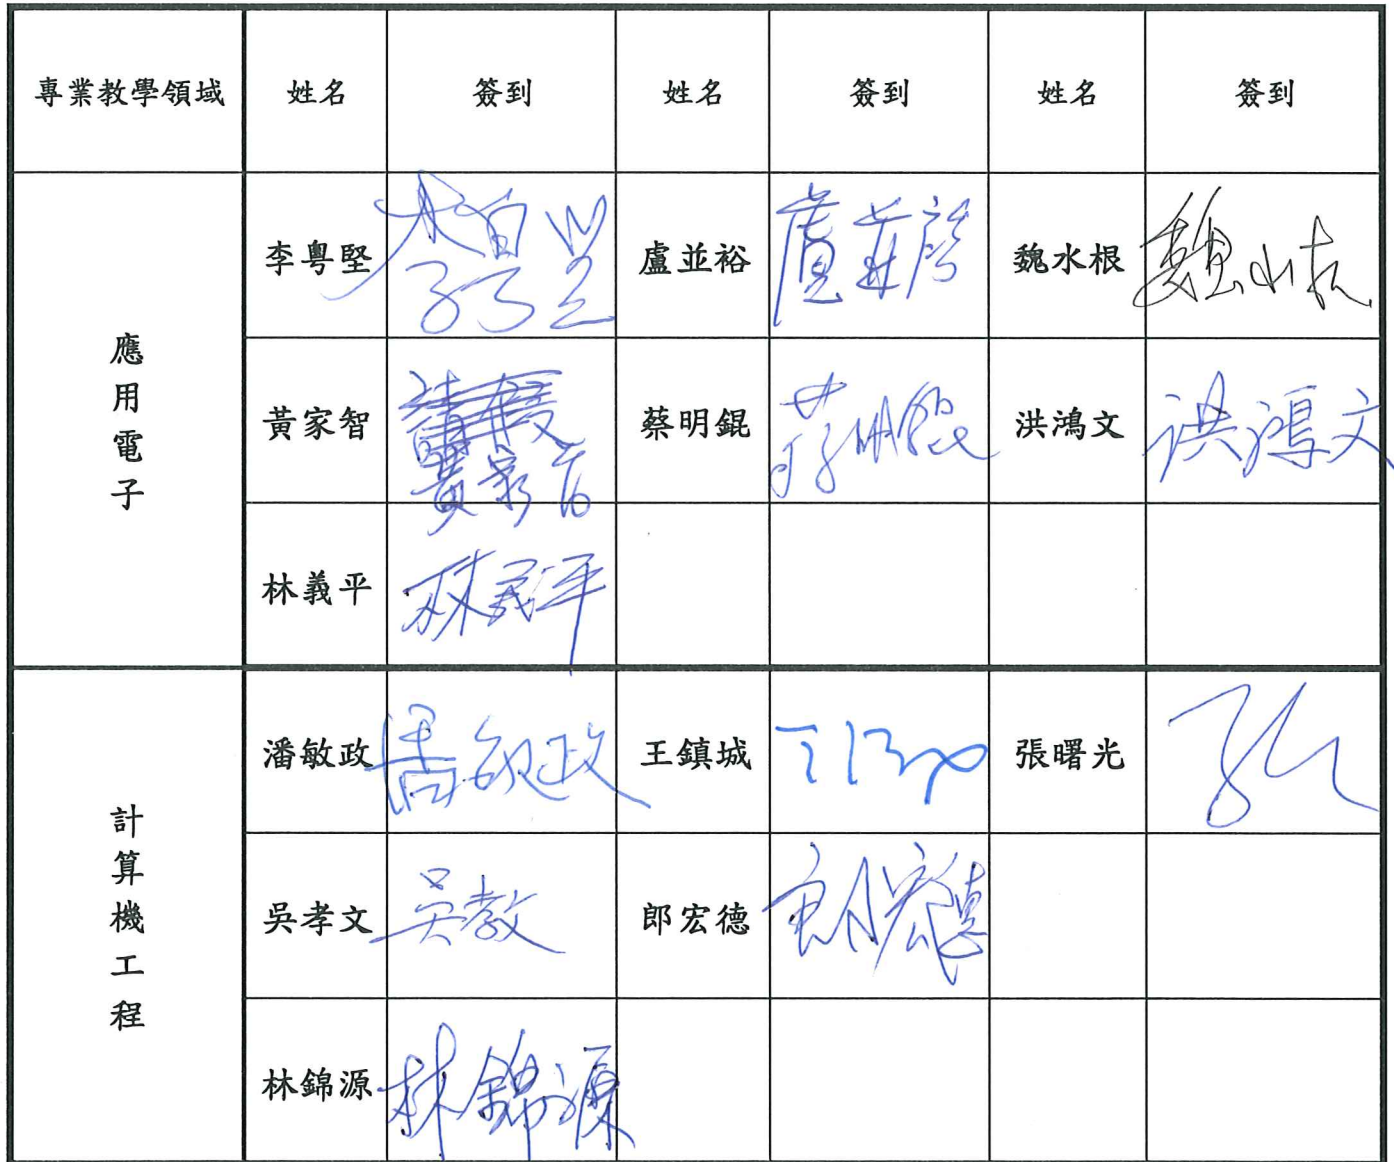 專業教學領域 姓名 簽到 姓名 簽到 姓名 簽到
應用電子
李粵堅 盧並裕 魏水根
黃家智 請假 黃家智 蔡明錕 蔡明錕 洪鴻文 洪鴻文
林義平 林義平
計算機工程
潘敏政 潘敏政 王鎮城 張曙光
吳孝文 郎宏德 郎宏德
林錦源 林錦源